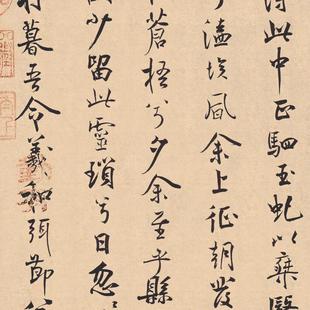 得此中正駟玉虬以椉鷖
兮溘埃風余上征朝發
蒼梧兮夕余至乎縣
少留此靈瑣兮日忽
將暮吾令羲和弭節